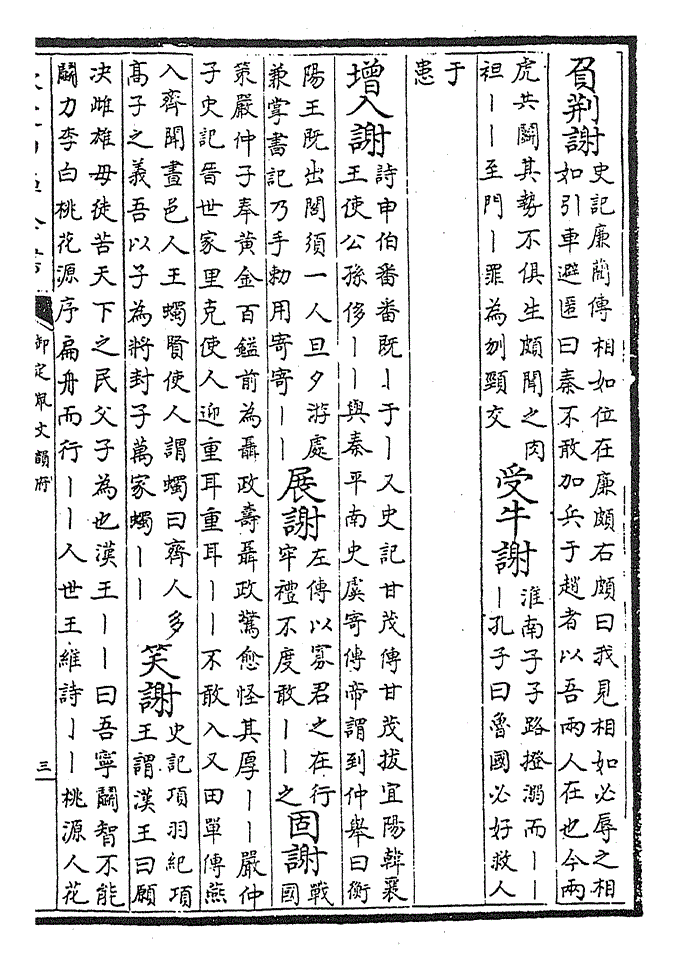 負荆謝
史記廉藺傳相如位在廉頗右頗曰我見相如必辱之相
如引車避匿曰秦不敢加兵于趙者以吾兩人在也今兩
虎共鬭其勢不俱生頗聞之肉
袒丨丨至門丨罪為刎頸交
受牛謝
淮南子子路撜溺而丨丨
丨孔子曰魯國必好救人
于
患
增入謝
詩申伯番番既丨于丨又史記甘茂傳甘茂拔宜陽韓襄
王使公孫侈丨丨與秦平南史虞寄傳帝謂到仲舉曰衡
陽王既出閤須一人旦夕游處
兼掌書記乃手勅用寄寄丨丨
展謝
左傳以寡君之在行
牢禮不度敢丨丨之
固謝
戰
國
策嚴仲子奉黃金百鎰前為聶政壽聶政驚愈怪其厚丨丨嚴仲
子史記晉世家里克使人迎重耳重耳丨丨不敢入又田單傳燕
入齊聞晝邑人王蠋賢使人謂蠋曰齊人多
高子之義吾以子為將封子萬家蠋丨丨
笑謝
史記項羽紀項
王謂漢王曰願
決雌雄毋徒苦天下之民父子為也漢王丨丨曰吾寧鬭智不能
鬭力李白桃花源序扁舟而行丨丨人世王維詩丨丨桃源人花
御定佩文韻府
三